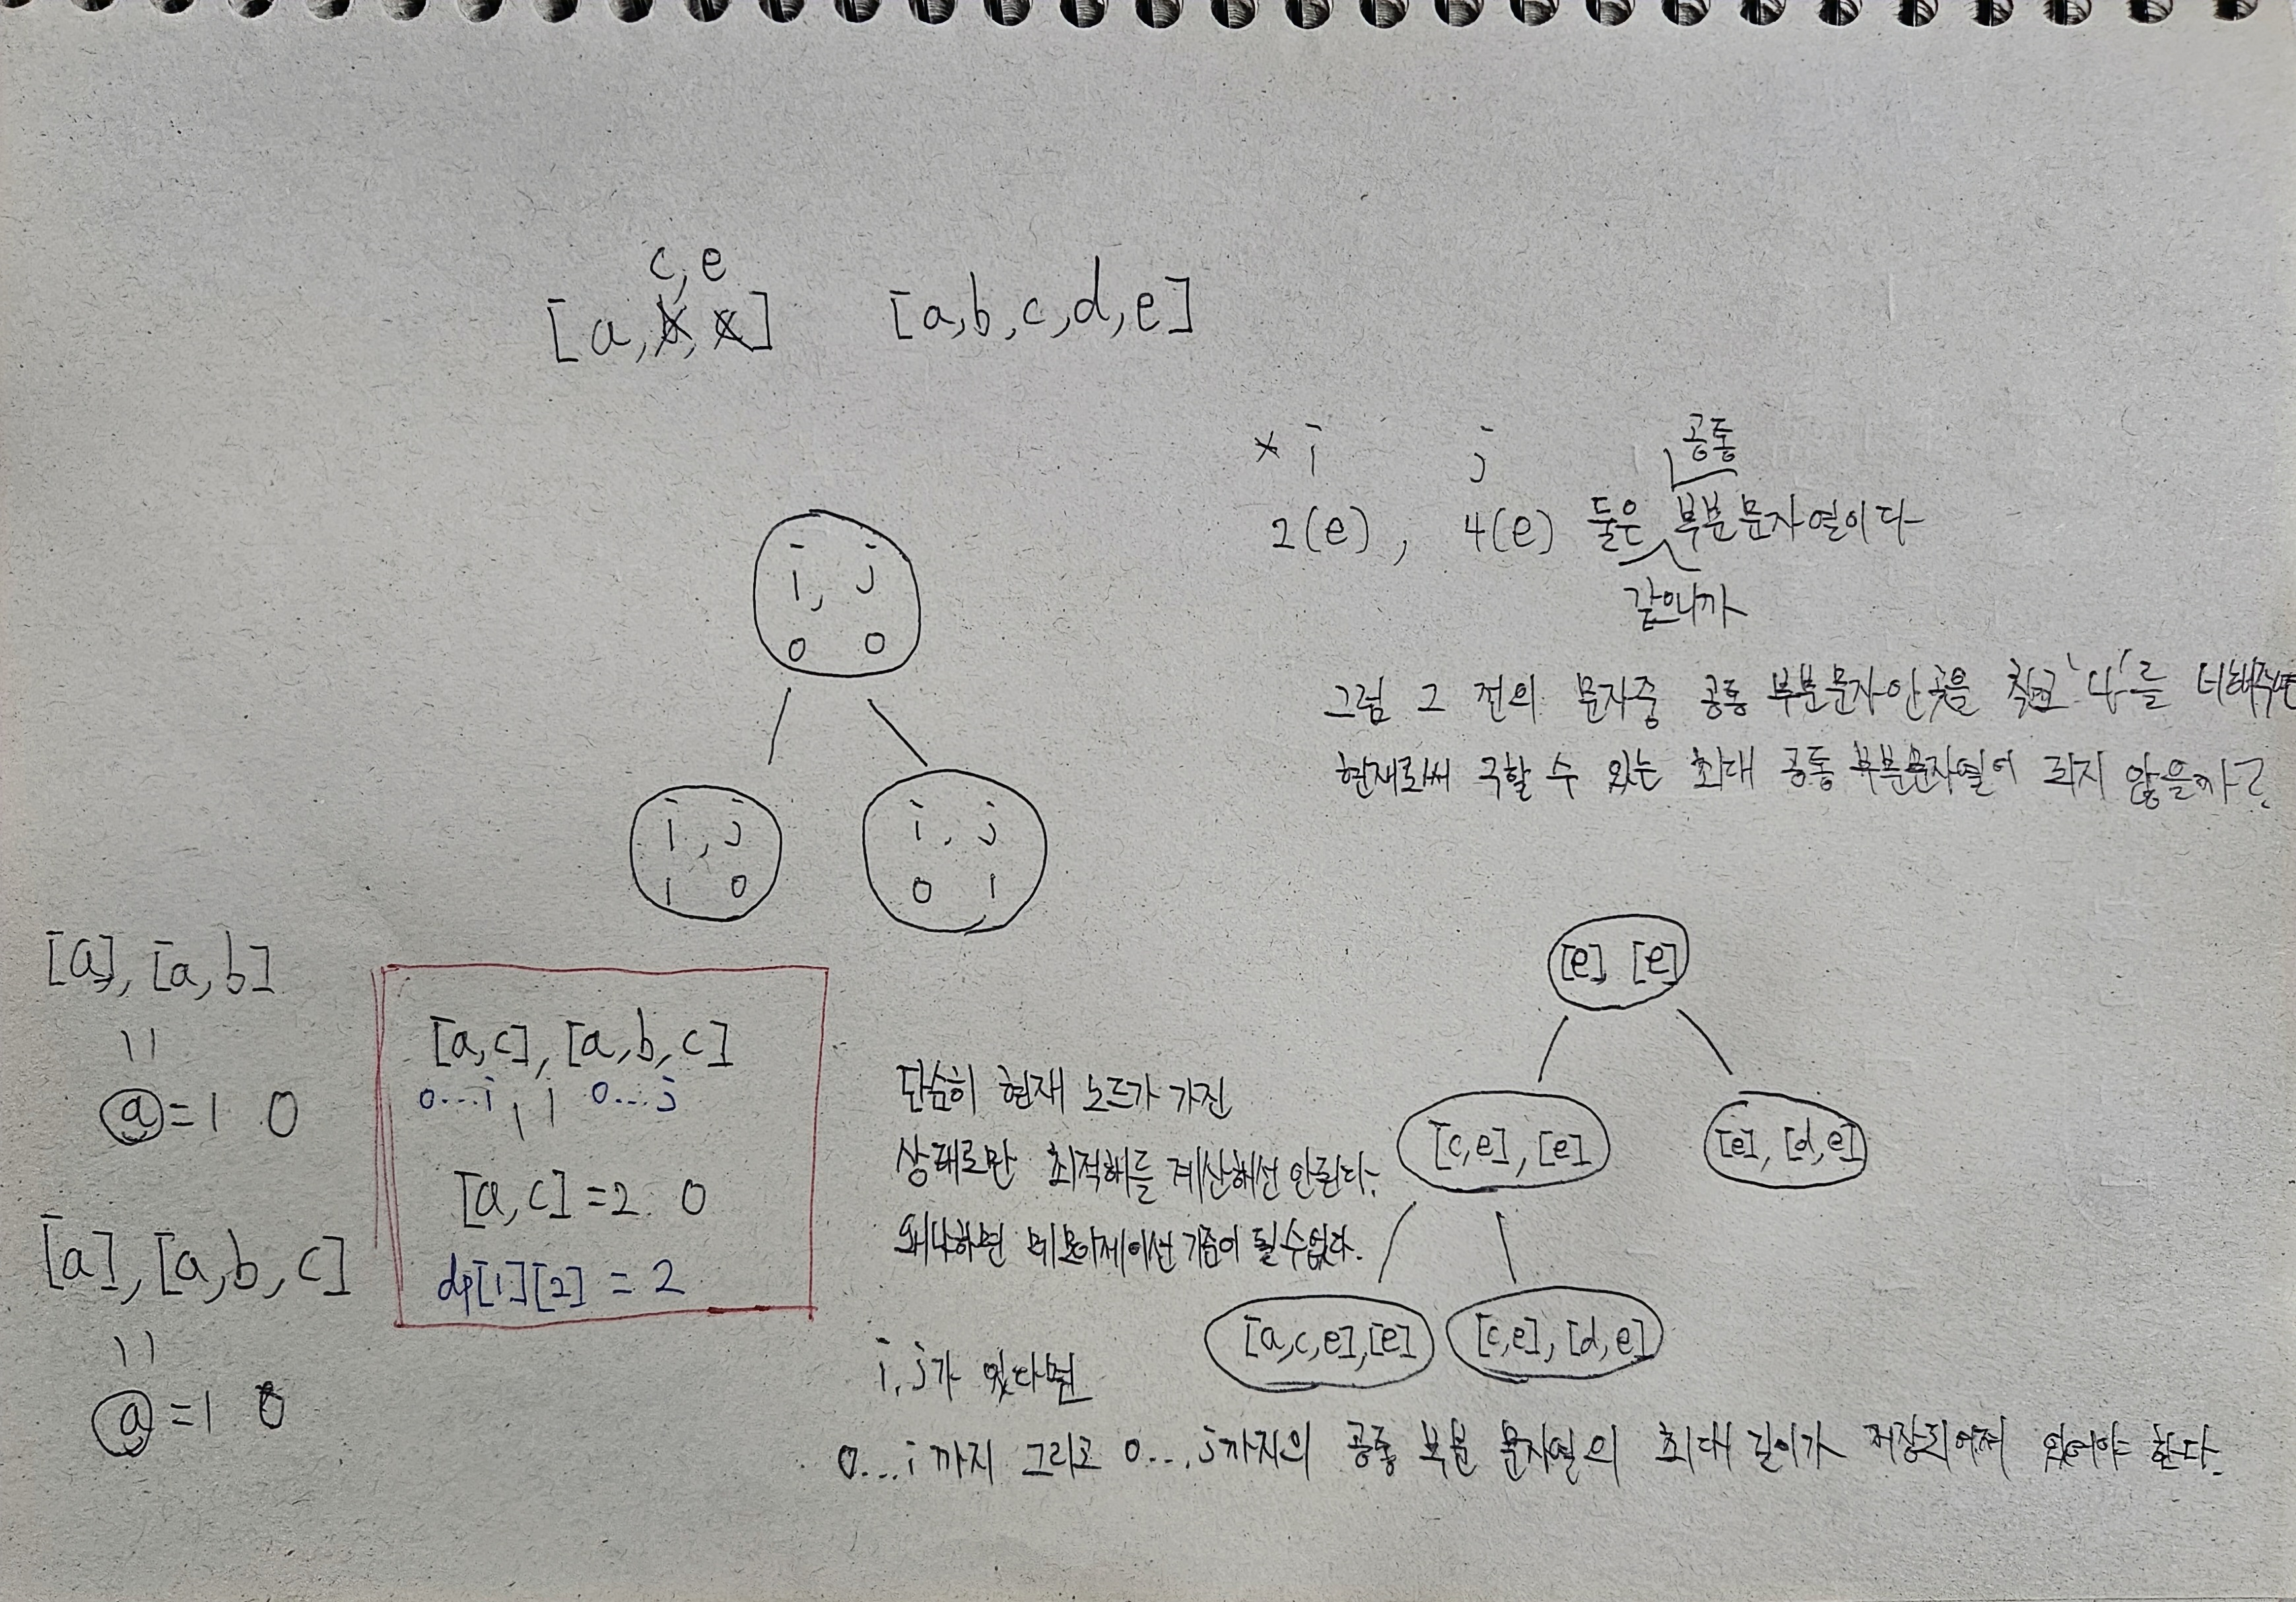 c, e
[a, b, c] [a,b,c,d,e]
* i j 공통
2(e) , 4(e) 둘은 부분문자열이다
같으니까
i, j
0 0
그럼 그 전의 문자중 공통 부분문자인 곳을 찾고 '나'를 더해주면
현재로써 구할 수 있는 최대 공통 부분문자열이 되지 않을까?
i, j
1 0
i, j
0 1
[a], [a,b]
||
a = 1 0
[a], [a,b,c]
||
a = 1 0
[a,c], [a,b,c]
0...i, 0...j
||
[a,c] = 2 0
dp[1][2] = 2
단순히 현재 노드가 가진
상태로만 최적해를 계산해선 안된다.
왜냐하면 메모이제이션 기준이 될 수 없다.
[e] [e]
[c,e], [e] [e], [d,e]
[a,c,e],[e] [c,e], [d,e]
i, j가 있다면
0...i까지 그리고 0...j까지의 공통 부분 문자열의 최대 길이가 저장되어져 있어야 한다.